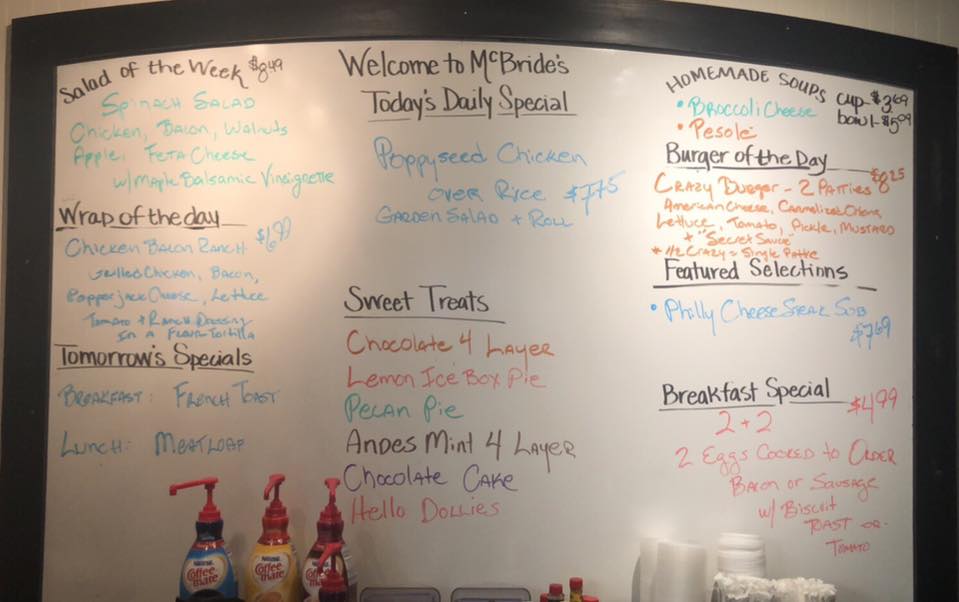 Salad of the Week $8.49
Spinach Salad
Chicken, Bacon, Walnuts
Apple, Feta Cheese
w/ Maple Balsamic Vinaigrette
Wrap of the day
Chicken Bacon Ranch $6.99
Grilled Chicken, Bacon,
Pepperjack Cheese, Lettuce
Tomato + Ranch Dressing
In a Flour Tortilla
Tomorrow's Specials
Breakfast: French Toast
Lunch: Meatloaf
Welcome to McBride's
Today's Daily Special
Poppyseed Chicken
over Rice $7.75
Garden Salad + Roll
Sweet Treats
Chocolate 4 Layer
Lemon Ice Box Pie
Pecan Pie
Andes Mint 4 Layer
Chocolate Cake
Hello Dollies
Homemade Soups cup-$3.69
bowl-$5.09
• Broccoli Cheese
• Pesole
Burger of the Day $8.25
Crazy Burger - 2 Patties
American Cheese, Carmelized Onions,
Lettuce, Tomato, Pickle, Mustard
+ "Secret Sauce"
* 1/2 Crazy = Single Pattie
Featured Selections
• Philly Cheese Steak Sub
$7.69
Breakfast Special $4.99
2 + 2
2 Eggs Cooked to Order
Bacon or Sausage
w/ Biscuit
Toast or
Tomato
Nestle
Coffee mate
Nestle
Coffee mate
Coffee mate